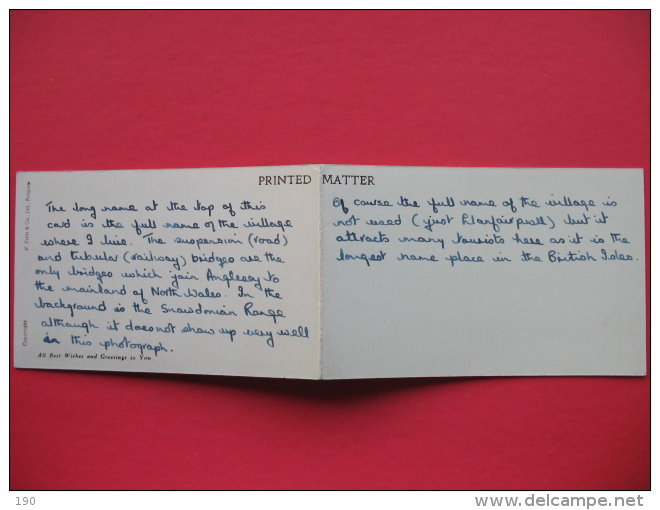 PRINTED MATTER
The long name at the top of this
card is the full name of the village
where I live. The suspension (road)
and tubular (railway) bridges are the
only bridges which join Anglesey to
the mainland of North Wales. In the
background is the Snowdonian Range
although it does not show up very well
in this photograph.
All Best Wishes and Greetings to You
Copyright
F. Frith & Co., Ltd., Reigate
Of course the full name of the village is
not used (just Llanfairpwll) but it
attracts many tourists here as it is the
longest name place in the British Isles.
190
www.delcampe.net